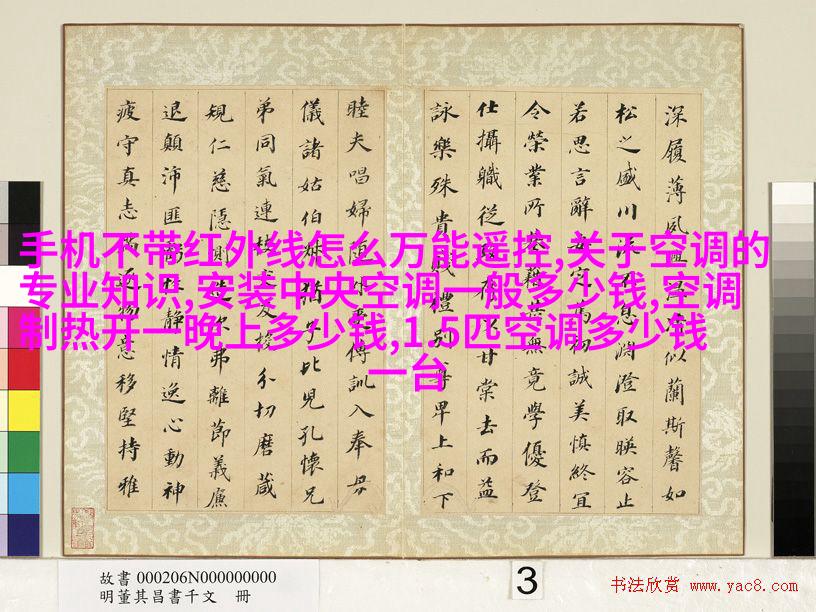 手机不带红外线怎么万能遥控,关于空调的
专业知识,安装中央空调一般多少钱,空调
制热开一晚上多少钱,1.5匹空调多少钱
一台
深履薄夙溫凊似蘭斯馨如
松之盛川流不息淵澄取暎容止
若思言辭安定篤初誠美慎終宜
令榮業所基藉甚無竟學優登
仕攝職從政存以甘棠去而益
詠樂殊貴賤禮別尊卑上和下
睦夫唱婦隨外受傅訓入奉母
儀諸姑伯叔猶子比兒孔懷兄
弟同氣連枝交友投分切磨箴
規仁慈隱惻造次弗離節義廉
退顛沛匪虧性靜情逸心動神
疲守真志滿逐物意移堅持雅
故書 000206N000000000
明董其昌書千文 冊
3
书法欣赏 www.yac8.com